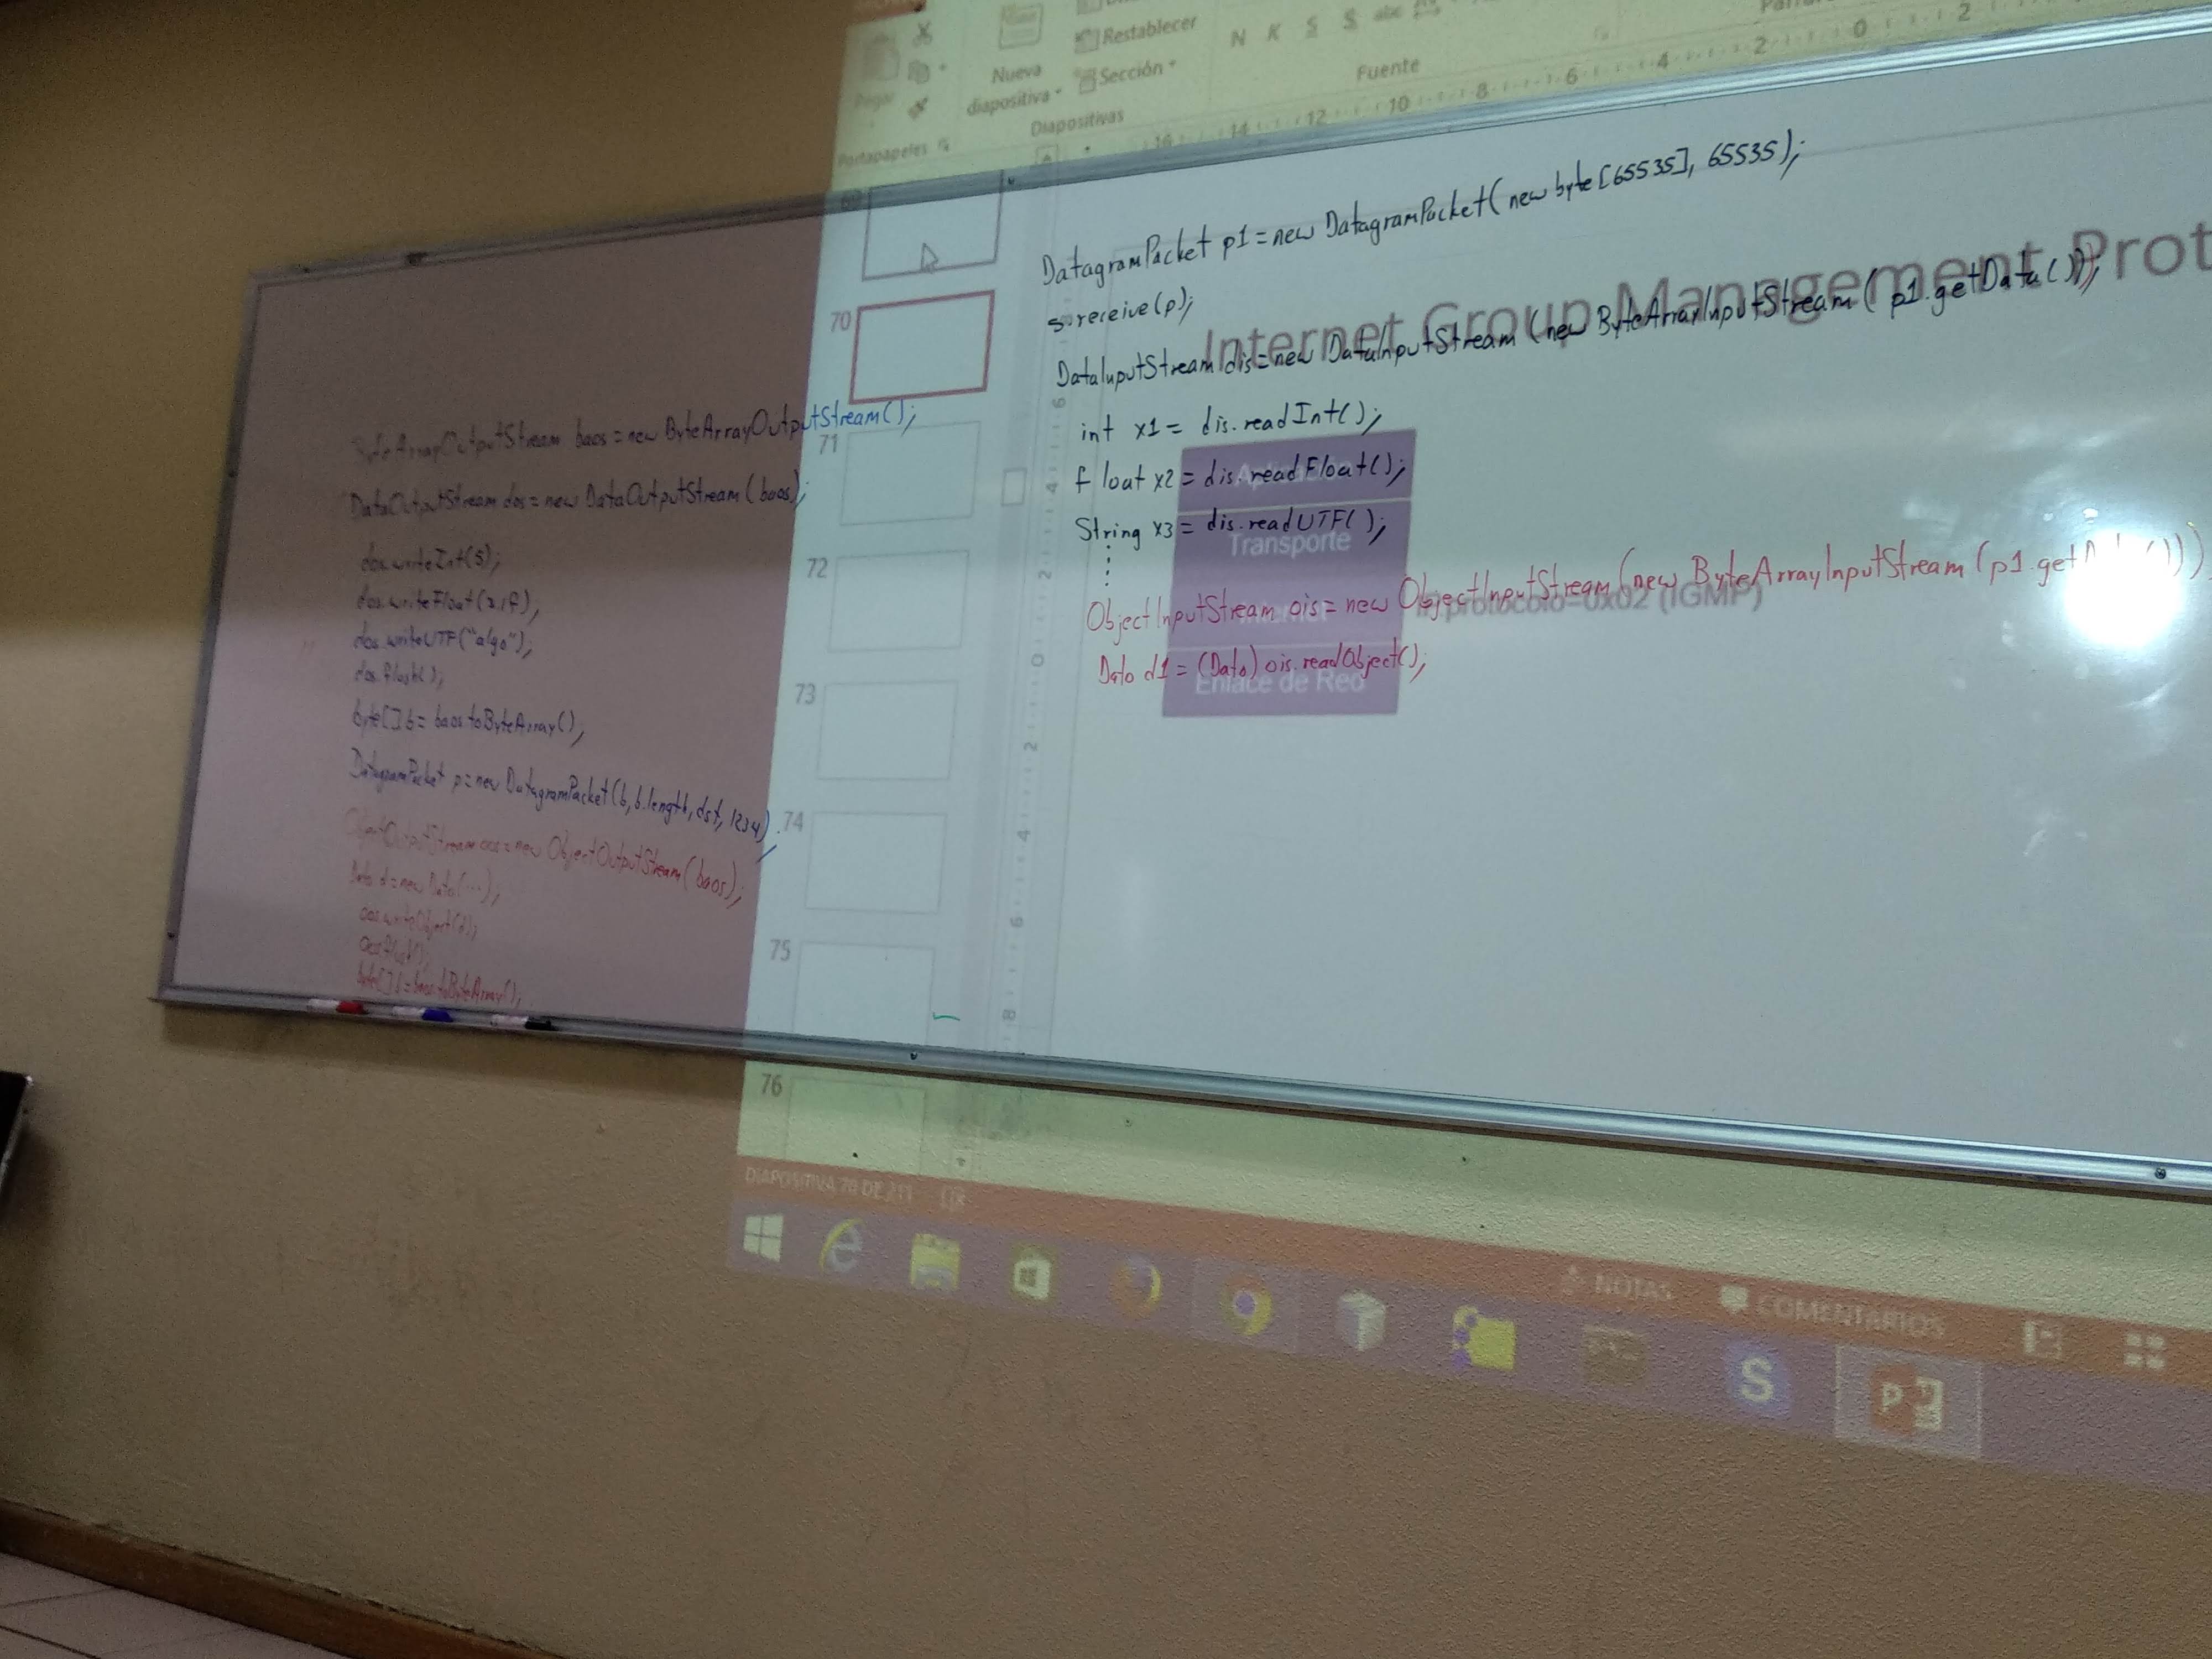 Restablecer
Nueva
diapositiva
Sección
Diapositivas
Portapapeles
N K S S abc
Fuente
16 14 12 10 8 6 4 2 0 2
70
71
72
73
74
75
76
ByteArrayOutputStream baos = new ByteArrayOutputStream();
DataOutputStream dos = new DataOutputStream(baos);
dos.writeInt(5);
dos.writeFloat(2.1f);
dos.writeUTF("algo");
dos.flush();
byte[] b = baos.toByteArray();
DatagramPacket p = new DatagramPacket(b, b.length, dst, 1234);
ObjectOutputStream oos = new ObjectOutputStream(baos);
Dato d = new Dato(...);
oos.writeObject(d);
oos.flush();
byte[] b = baos.toByteArray();
DatagramPacket p1 = new DatagramPacket(new byte[65535], 65535);
s.receive(p);
Internet Group Management Prot
DataInputStream dis = new DataInputStream(new ByteArrayInputStream(p1.getData()));
int x1 = dis.readInt();
float x2 = dis.readFloat();
String x3 = dis.readUTF();
Transporte
ObjectInputStream ois = new ObjectInputStream(new ByteArrayInputStream(p1.get
protocolo=0x02 (IGMP)
Dato d1 = (Dato) ois.readObject();
Enlace de Red
6 4 2 0 2 4 6 8
DIAPOSITIVA 70 DE 211
NOTAS
COMENTARIOS
S
P